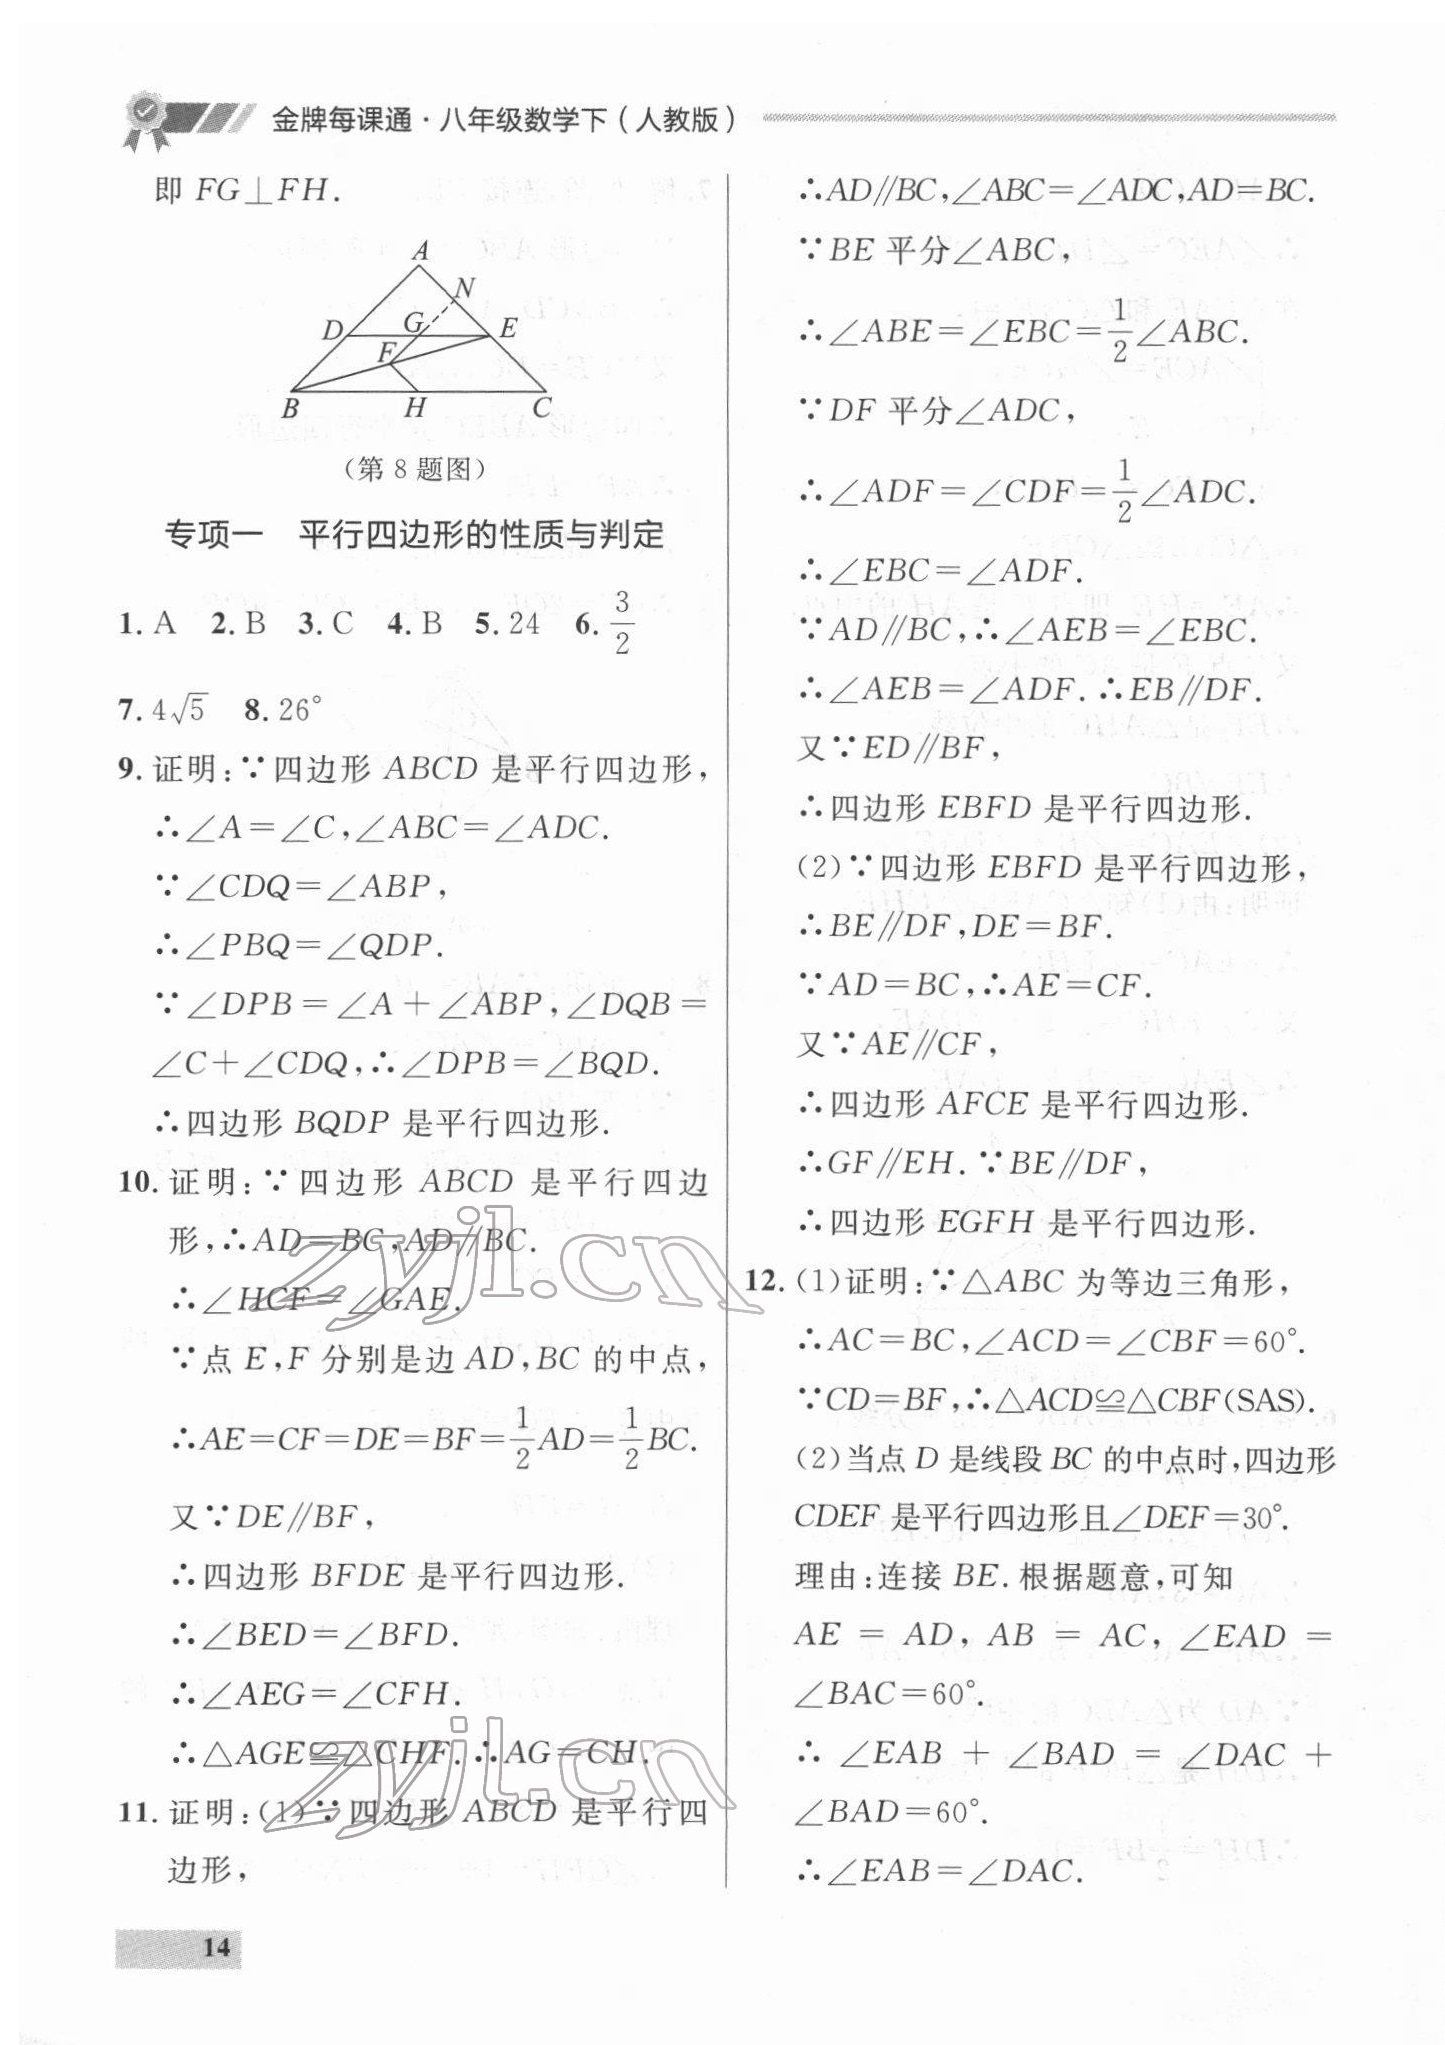 金牌每课通·八年级数学下(人教版)
即 FG⊥FH.
A
N
D
G
E
F
B
H
C
(第 8 题图)
专项一 平行四边形的性质与判定
1. A 2. B 3. C 4. B 5. 24 6. 3/2
7. 4√5 8. 26°
9. 证明:∵四边形 ABCD 是平行四边形,
∴∠A=∠C,∠ABC=∠ADC.
∵∠CDQ=∠ABP,
∴∠PBQ=∠QDP.
∵∠DPB=∠A+∠ABP,∠DQB=
∠C+∠CDQ,∴∠DPB=∠BQD.
∴四边形 BQDP 是平行四边形.
10. 证明:∵四边形 ABCD 是平行四边
形,∴AD=BC,AD∥BC.
∴∠HCF=∠GAE.
∵点 E,F 分别是边 AD,BC 的中点,
∴AE=CF=DE=BF=1/2AD=1/2BC.
又∵DE∥BF,
∴四边形 BFDE 是平行四边形.
∴∠BED=∠BFD.
∴∠AEG=∠CFH.
∴△AGE≌△CHF.∴AG=CH.
11. 证明:(1)∵四边形 ABCD 是平行四
边形,
∴AD∥BC,∠ABC=∠ADC,AD=BC.
∵BE 平分∠ABC,
∴∠ABE=∠EBC=1/2∠ABC.
∵DF 平分∠ADC,
∴∠ADF=∠CDF=1/2∠ADC.
∴∠EBC=∠ADF.
∵AD∥BC,∴∠AEB=∠EBC.
∴∠AEB=∠ADF.∴EB∥DF.
又∵ED∥BF,
∴四边形 EBFD 是平行四边形.
(2)∵四边形 EBFD 是平行四边形,
∴BE∥DF,DE=BF.
∵AD=BC,∴AE=CF.
又∵AE∥CF,
∴四边形 AFCE 是平行四边形.
∴GF∥EH.∵BE∥DF,
∴四边形 EGFH 是平行四边形.
12. (1)证明:∵△ABC 为等边三角形,
∴AC=BC,∠ACD=∠CBF=60°.
∵CD=BF,∴△ACD≌△CBF(SAS).
(2)当点 D 是线段 BC 的中点时,四边形
CDEF 是平行四边形且∠DEF=30°.
理由:连接 BE.根据题意,可知
AE = AD, AB = AC, ∠EAD =
∠BAC=60°.
∴ ∠EAB + ∠BAD = ∠DAC +
∠BAD=60°.
∴∠EAB=∠DAC.
zyjl.cn
zyjl.cn
14